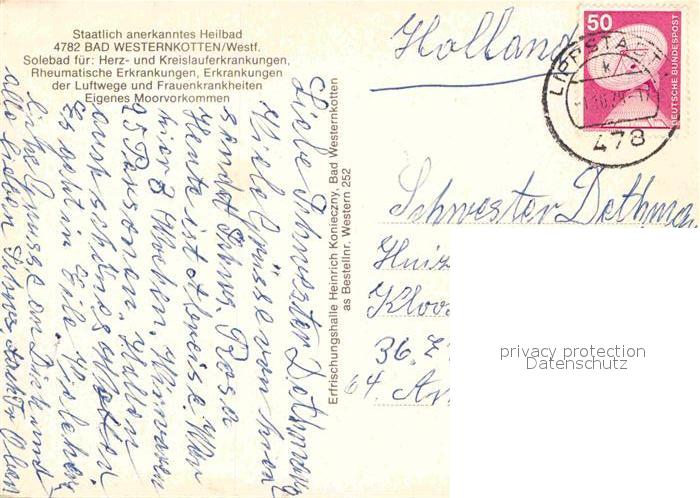 Staatlich anerkanntes Heilbad
4782 BAD WESTERNKOTTEN/Westf.
Solebad für: Herz- und Kreislauferkrankungen,
Rheumatische Erkrankungen, Erkrankungen
der Luftwege und Frauenkrankheiten
Eigenes Moorvorkommen
Holland
50
DEUTSCHE BUNDESPOST
LIPPSTADT
k
478
Erfrischungshalle Heinrich Konieczny, Bad Westernkotten
as Bestellnr. Western 252
Liebe Schwester Dethmara
Viele Grüsse von hier
sendet Rosa
Heute ist Abreise. Wir
hier 3 Wochen. Wir waren
25 Personen. Hatten
auch schönes Wetter
Es geht in Eile. Viele herz
liche Grüsse an Dich und
alle lieben
Schwester Dethma
Huiz
Kloos
36.
64. Ar
privacy protection
Datenschutz